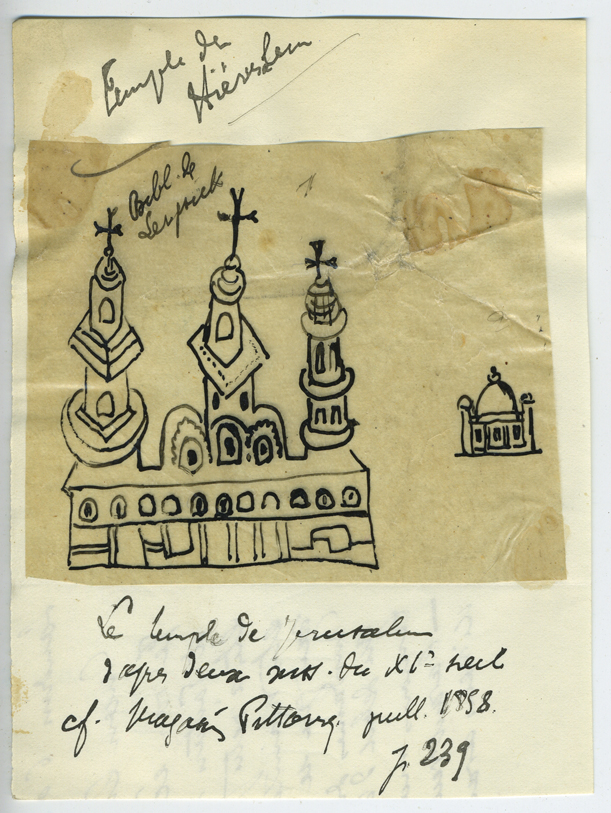 Temple de
Hiérusalem
Bibl. de
Le temple de Jerusalem
d'apres deux mss. du XIe siecl
cf. Magasin Pittoresq. juill. 1858.
p. 239